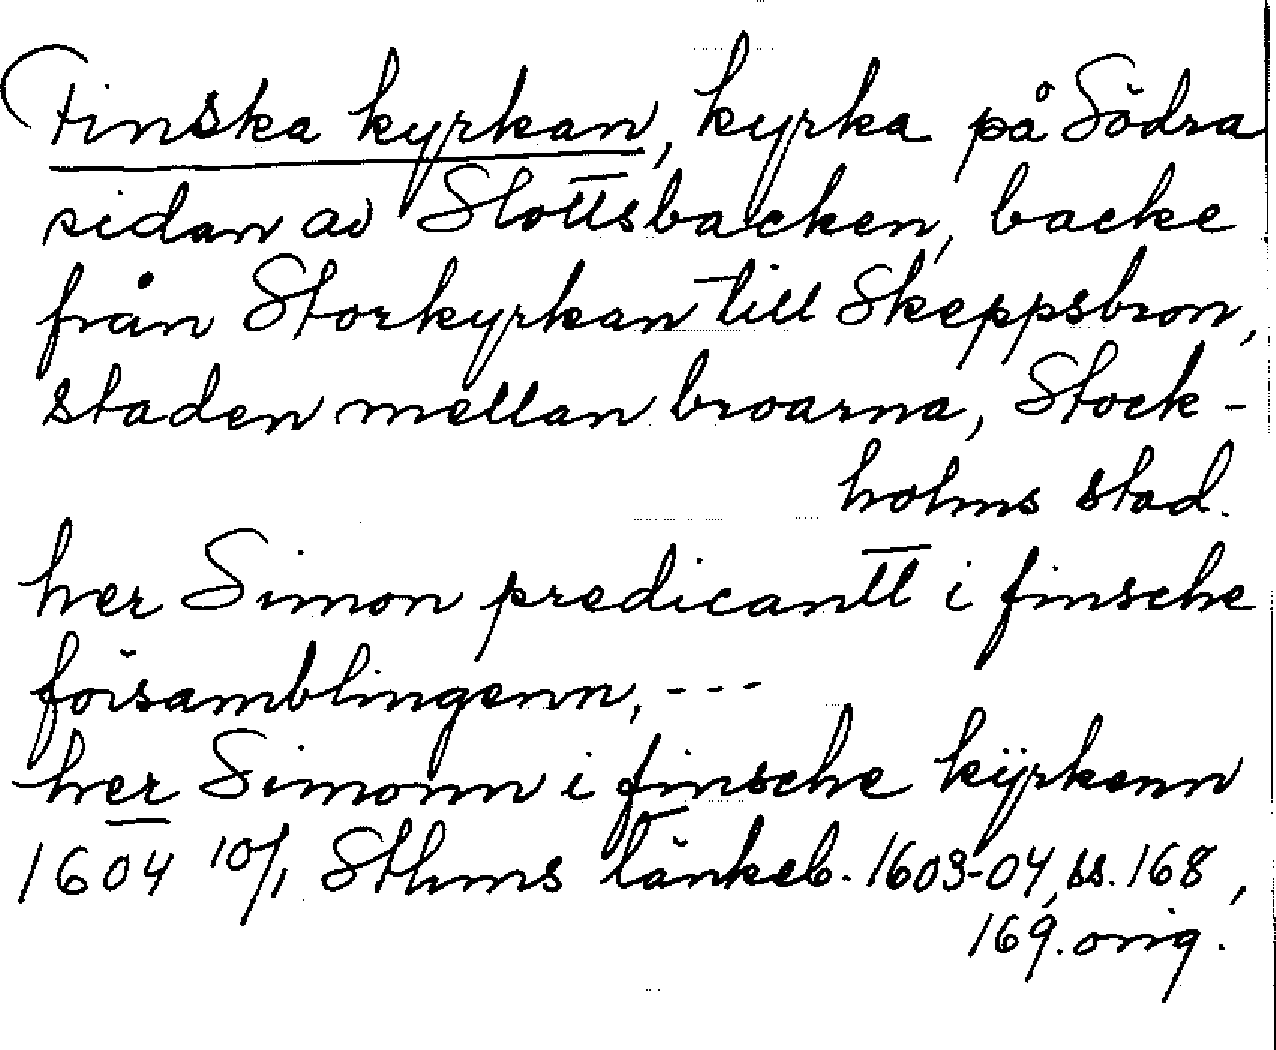 Finska kyrkan, kyrka på Södra
sidan av Slottsbacken, backe
från Storkyrkan till Skeppsbron,
staden mellan broarna, Stock-
holms stad.
her Simon predicantt i finsche
församblingenn, ---
her Simonn i finsche kÿrkenn
1604 10/1 Sthms tänkeb. 1603-04, ss. 168,
169. orig.